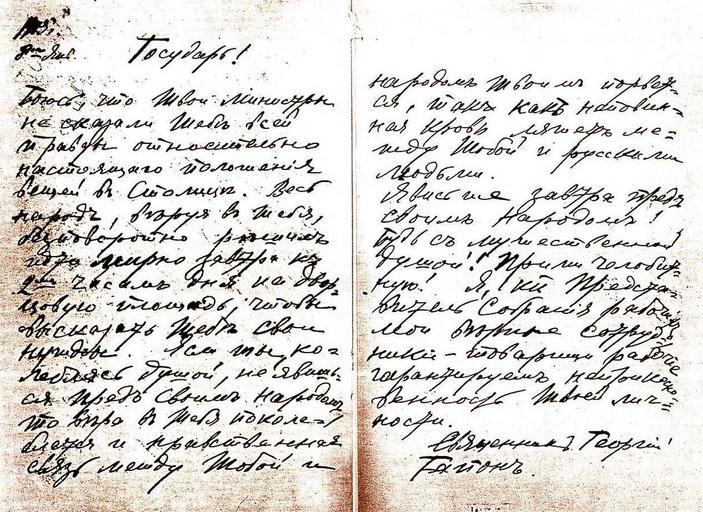 Государь!
Боюсь, что Твои Министры
не сказали Тебѣ всей
правды относительно
настоящаго положенія
вещей въ Столицѣ. Весь
народъ, вѣруя въ Тебя,
безповоротно рѣшилъ
мирно завтра въ
2 часа дня на Двор-
цовую площадь, чтобы
высказать Тебѣ свои
нужды. Если ты, ко-
леблясь душой, не явишь-
ся предъ своимъ народомъ,
то вѣра въ Тебя поколе-
блется и нравственная
связь между Тобой и
народомъ твоимъ порвет-
ся, такъ какъ неповин-
ная кровь ляжетъ ме-
жду Тобой и русскими
людьми.
Явись же завтра предъ
своимъ Народомъ!
Будь съ мужественной
душой! Прими челобит-
ную! Я, Предста-
витель Собранія рабочихъ
мои вѣрные сотруд-
ники - товарищи рабочіе
гарантируемъ неприкосно-
венность Твоей лич-
ности.
Священникъ Георгій
Гапонъ.